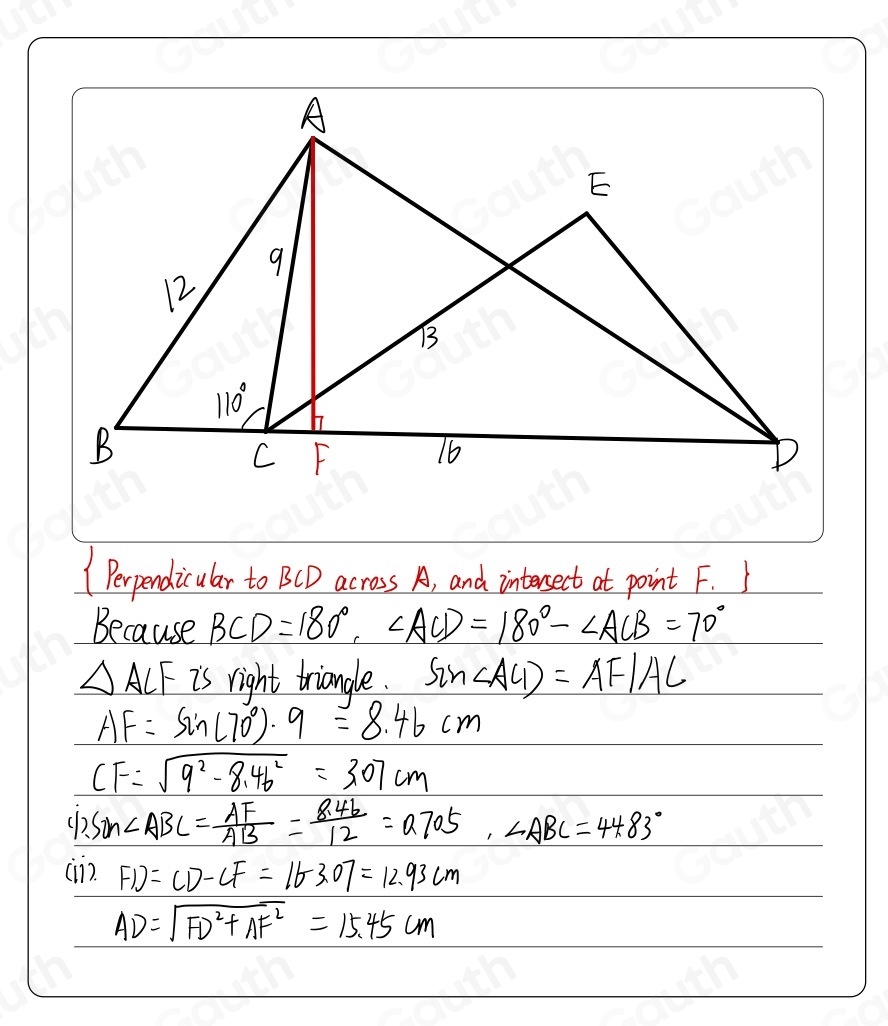 A
E
9
12
13
110°
B
C
F
16
D
{ Perpendicular to BCD across A, and intersect at point F. }
Because BCD = 180°, ∠ACD = 180° - ∠ACB = 70°
△ ACF is right triangle. Sin∠ACD = AF/AC
AF = Sin(70°)·9 = 8.46 cm
CF = √9² - 8.46² = 3.07 cm
(i). Sin∠ABC = AF/AB = 8.46/12 = 0.705, ∠ABC = 44.83°
(ii). FD = CD - CF = 16-3.07 = 12.93 cm
AD = √FD² + AF² = 15.45 cm
Gauth